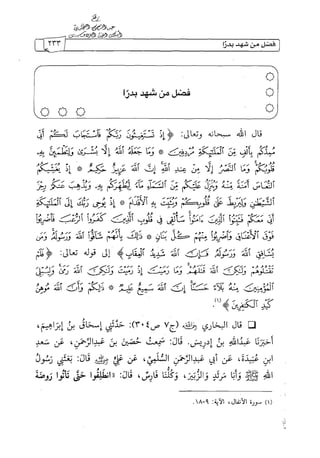 فضل من شهد بدرًا
٢٣٣
فضل من شهد بدرًا
قال الله سبحانه وتعالى: ﴿إِذْ تَسْتَغِيثُونَ رَبَّكُمْ فَاسْتَجَابَ لَكُمْ أَنِّي
مُمِدُّكُم بِأَلْفٍ مِّنَ الْمَلَائِكَةِ مُرْدِفِينَ * وَمَا جَعَلَهُ اللَّهُ إِلَّا بُشْرَى وَلِتَطْمَئِنَّ بِهِ
قُلُوبُكُمْ وَمَا النَّصْرُ إِلَّا مِنْ عِندِ اللَّهِ إِنَّ اللَّهَ عَزِيزٌ حَكِيمٌ * إِذْ يُغَشِّيكُمُ
النُّعَاسَ أَمَنَةً مِّنْهُ وَيُنَزِّلُ عَلَيْكُم مِّنَ السَّمَاءِ مَاءً لِّيُطَهِّرَكُم بِهِ وَيُذْهِبَ عَنكُمْ رِجْزَ
الشَّيْطَانِ وَلِيَرْبِطَ عَلَى قُلُوبِكُمْ وَيُثَبِّتَ بِهِ الْأَقْدَامَ * إِذْ يُوحِي رَبُّكَ إِلَى الْمَلَائِكَةِ
أَنِّي مَعَكُمْ فَثَبِّتُوا الَّذِينَ آمَنُوا سَأُلْقِي فِي قُلُوبِ الَّذِينَ كَفَرُوا الرُّعْبَ فَاضْرِبُوا
فَوْقَ الْأَعْنَاقِ وَاضْرِبُوا مِنْهُمْ كُلَّ بَنَانٍ * ذَلِكَ بِأَنَّهُمْ شَاقُّوا اللَّهَ وَرَسُولَهُ وَمَن
يُشَاقِقِ اللَّهَ وَرَسُولَهُ فَإِنَّ اللَّهَ شَدِيدُ الْعِقَابِ﴾ إلى قوله تعالى: ﴿فَلَمْ
تَقْتُلُوهُمْ وَلَكِنَّ اللَّهَ قَتَلَهُمْ وَمَا رَمَيْتَ إِذْ رَمَيْتَ وَلَكِنَّ اللَّهَ رَمَى وَلِيُبْلِيَ
الْمُؤْمِنِينَ مِنْهُ بَلَاءً حَسَنًا إِنَّ اللَّهَ سَمِيعٌ عَلِيمٌ * ذَلِكُمْ وَأَنَّ اللَّهَ مُوهِنُ
كَيْدِ الْكَافِرِينَ﴾(١).
قال البخاري رحمه الله (ج٧ ص٣٠٤): حَدَّثَنِي إِسحَاقُ بنُ إِبرَاهِيمَ،
أَخبَرَنَا عَبدُاللهِ بنُ إِدرِيسَ. قَالَ: سَمِعتُ حُصَينَ بنَ عَبدِالرَّحمَنِ، عَن سَعدِ
ابنِ عُبَيدَةَ، عَن أَبي عَبدِالرَّحمَنِ السُّلَمِيِّ، عَن عَلِيٍّ رضي الله عنه قَالَ: بَعَثَنِي رَسُولُ
اللهِ ﷺ وَأَبَا مَرثَدٍ وَالزُّبَيرَ، وَكُلُّنَا فَارِسٌ، قَالَ: «انطَلِقُوا حَتَّى تَأتُوا رَوضَةَ
(١) سورة الأنفال، الآية: ٩-١٨.